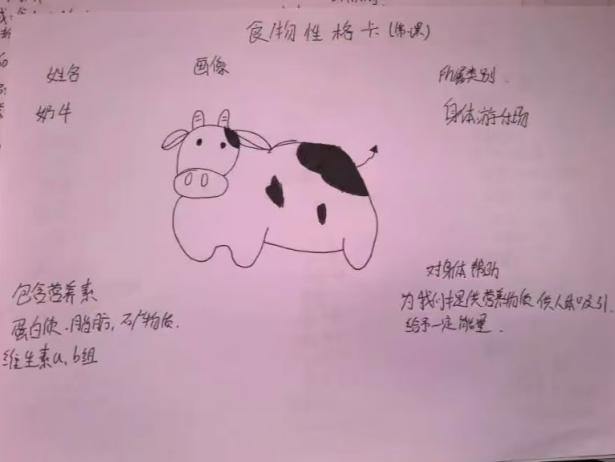 食物性格卡(第一课)
姓名
画像
所属类别
奶牛
身体游乐场
包含营养素
蛋白质.脂肪,矿物质.
维生素a,b组
对身体帮助
为我们提供营养物质供人体吸引.
给予一定能量.